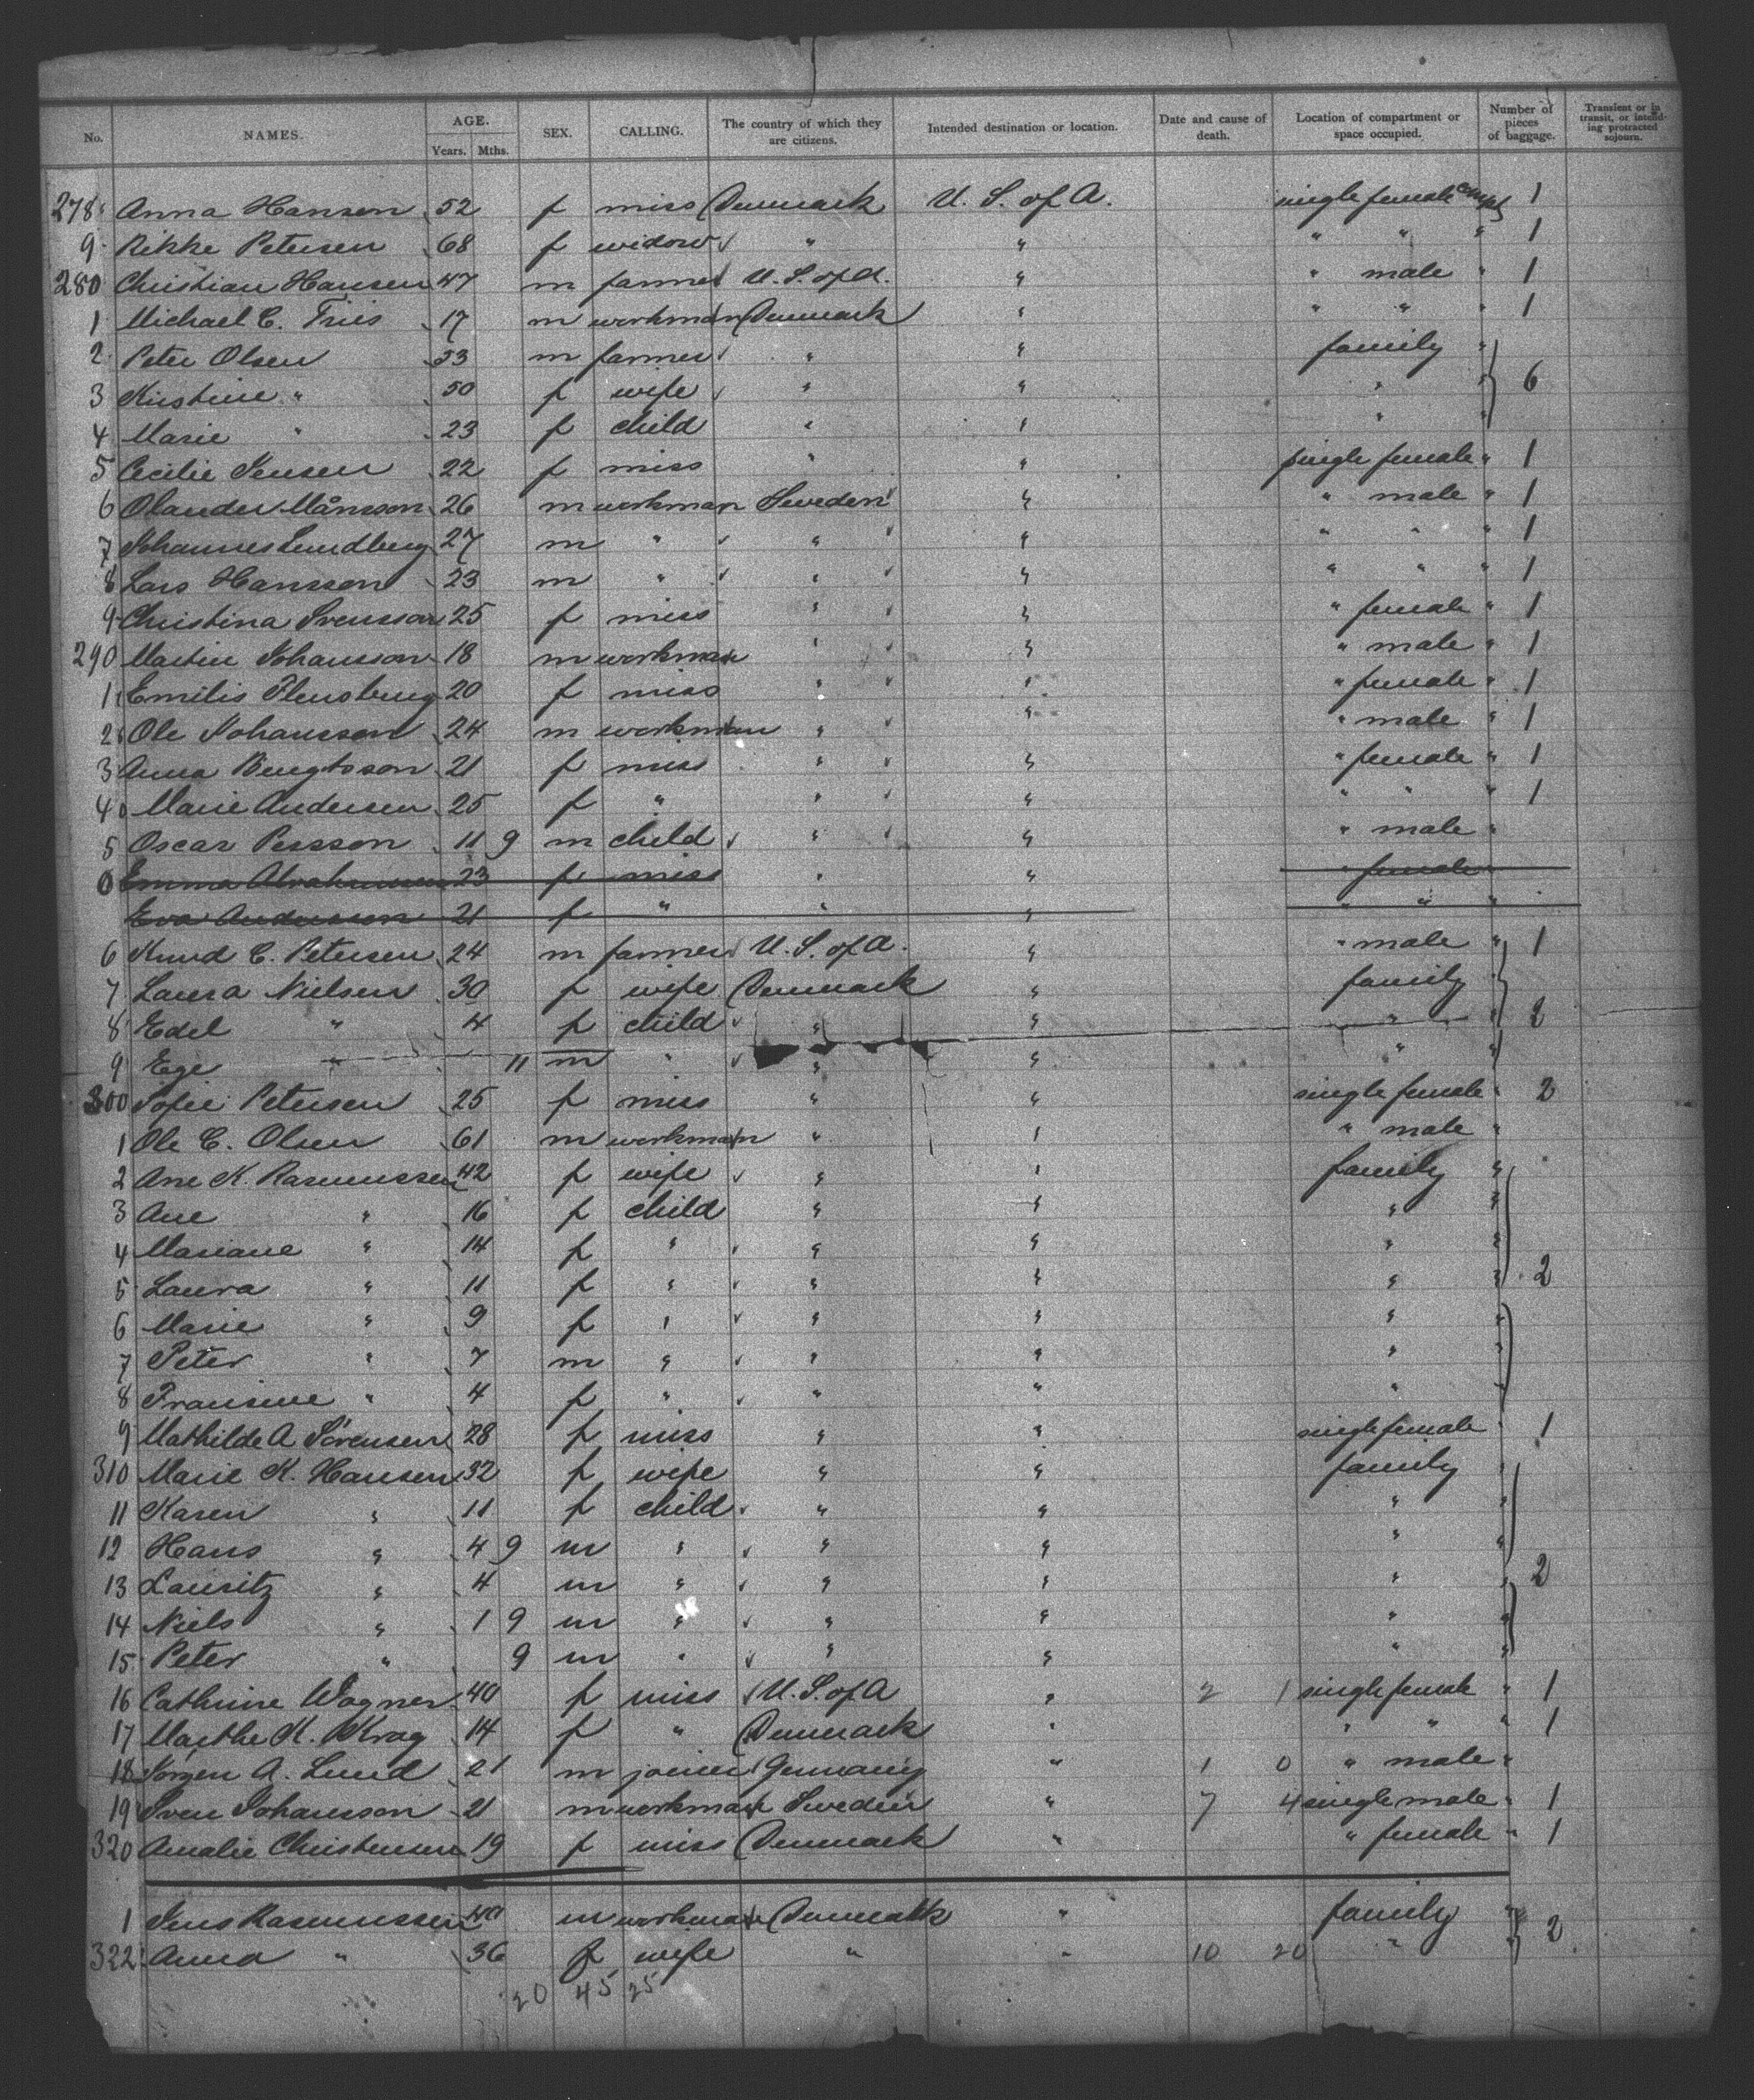 No. NAMES. AGE. Years. Mths. SEX. CALLING. The country of which they are citizens. Intended destination or location. Date and cause of death. Location of compartment or space occupied. Number of pieces of baggage. Transient or in transit, or intending protracted sojourn.
278 Anna Hansen 52 f miss Denmark U. S. of A. single female 1
9 Rikke Petersen 68 f widow " " " " " 1
280 Christian Hansen 47 m farmer U. S. of A. " " male " 1
1 Michael C. Friis 17 m workman Denmark " " " " 1
2 Peter Olsen 53 m farmer " " family "
3 Kirstine " 50 f wife " " " " 6
4 Marie " 23 f child " " " "
5 Cecilie Jensen 22 f miss " " single female " 1
6 Olander Månsson 26 m workman Sweden " " male " 1
7 Johannes Lundberg 27 m " " " " " " 1
8 Lars Hansson 23 m " " " " " " 1
9 Christina Svensson 25 f miss " " " female " 1
290 Martin Johansson 18 m workman " " " male " 1
1 Emilis Flensburg 20 f miss " " " female " 1
2 Ole Johansson 24 m workman " " " male " 1
3 Anna Bengtsson 21 f miss " " " female " 1
4 Marie Andersen 25 f " " " " " " 1
5 Oscar Persson 11 9 m child " " " male "
0 Emma Abrahamsson 23 f miss " " " female "
Eva Andersson 21 f " " " " " "
6 Knud C. Petersen 24 m farmer U. S. of A. " " male " 1
7 Laura Nielsen 30 f wife Denmark " family "
8 Edel " 4 f child " " " " 2
9 Ege " 11 m " " " " "
300 Sofie Petersen 25 f miss " " single female " 2
1 Ole C. Olsen 61 m workman " " " male "
2 Ane K. Rasmussen 42 f wife " " family "
3 Ane " 16 f child " " " "
4 Mariane " 14 f " " " " "
5 Laura " 11 f " " " " " 2
6 Marie " 9 f " " " " "
7 Peter " 7 m " " " " "
8 Fransine " 4 f " " " " "
9 Mathilde A Sörensen 28 f miss " " single female " 1
310 Marie K. Hansen 32 f wife " " family "
11 Karen " 11 f child " " " "
12 Hans " 4 9 m " " " " "
13 Lauritz " 4 m " " " " " 2
14 Niels " 1 9 m " " " " "
15 Peter " 9 m " " " " "
16 Cathrine Wagner 40 f miss U. S. of A " 2 1 single female " 1
17 Marthe K. Krag 14 f " Denmark " " " " 1
18 Jörgen A. Lund 21 m joiner Germany " 1 0 " male "
19 Sven Johansson 21 m workman Sweden " 7 4 single male " 1
320 Amalie Christensen 19 f miss Denmark " " female " 1
1 Jens Rasmussen 40 m workman Denmark " family "
322 Anna " 36 f wife " " 10 20 " " 2
20 45 25